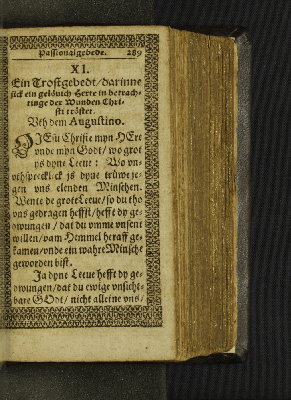 Passionalgebede. 289
XI.
Ein Trostgebedt/ darinne
sick ein gelövich Herte in betrach-
tinge der Wunden Chri-
sti tröstet.
Vth dem Augustino.
O JEsu Christe myn HErr
vnde myn Godt/ wo grot
ys dyne Leeue: Wo vn-
vthspreklick ys dyne trüwe je-
gen vns elenden Minschen.
Wente de grote Leeue/ so du tho
vns gedragen hefft/ hefft dy ge-
dwungen/ dat du vmme vnsent
willen/ vam Hemmel heraff ge-
kamen/ vnde ein wahre Minsche
geworden bist.
Ja dyne Leeue hefft dy ge-
dwungen/ dat du ewige vnsicht-
bare GOdt/ nicht alleine vns/